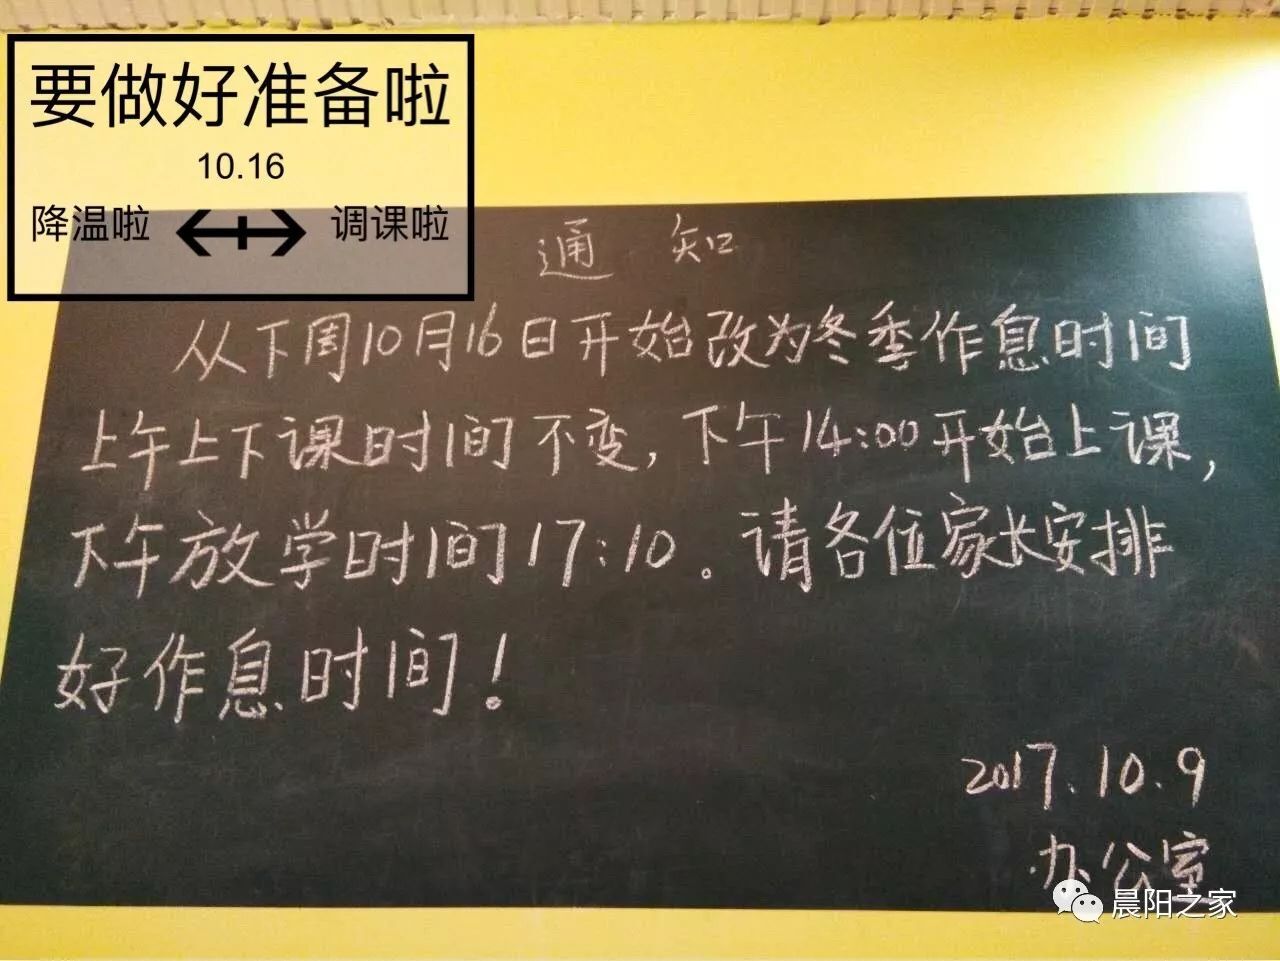 要做好准备啦
10.16
降温啦 调课啦
通 知
从下周10月16日开始改为冬季作息时间
上午上下课时间不变,下午14:00开始上课,
下午放学时间17:10。请各位家长安排
好作息时间!
2017.10.9
办公室
晨阳之家